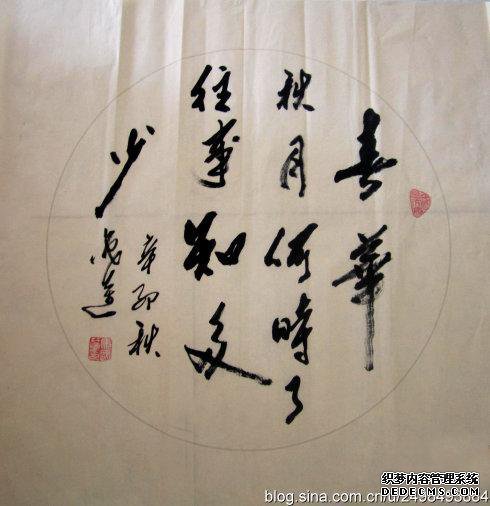 春華
秋月何時了
往事知多
少
辛卯秋
织梦内容管理系统
DEDECMS.COM
blog.sina.com.cn/u/2498495884